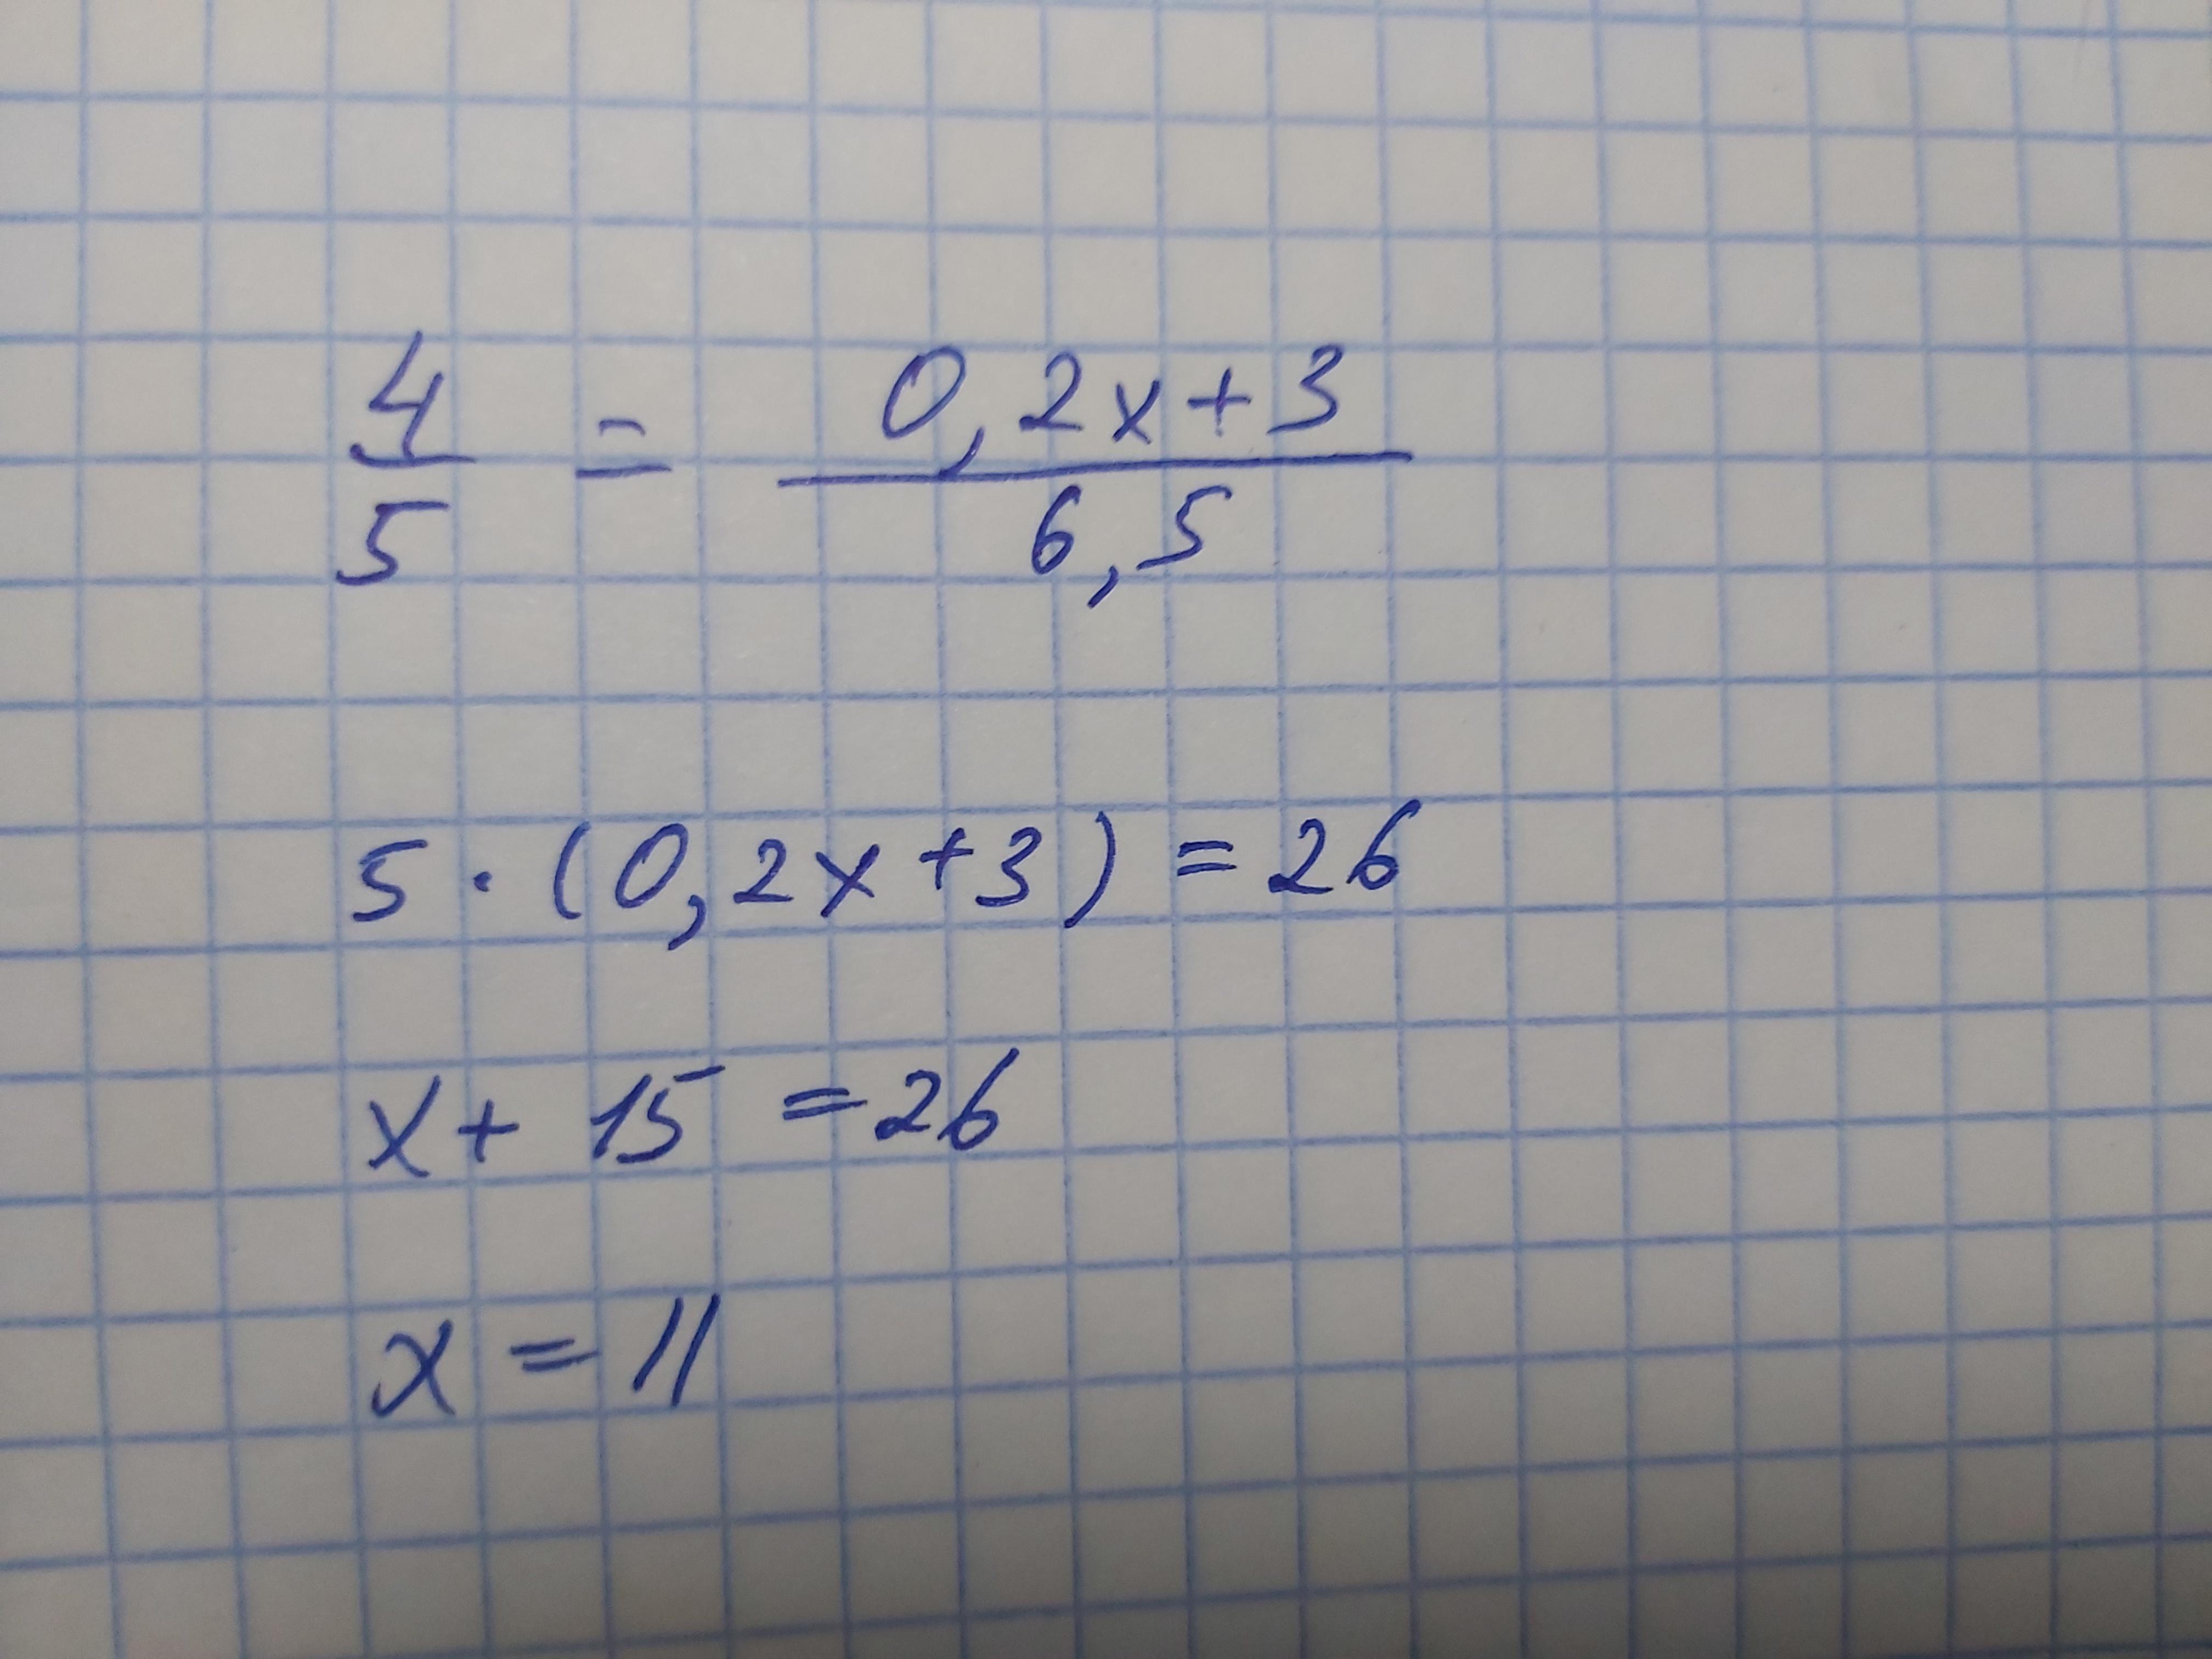 4/5 = (0,2x+3)/6,5
5·(0,2x+3)=26
x+15=26
x=11